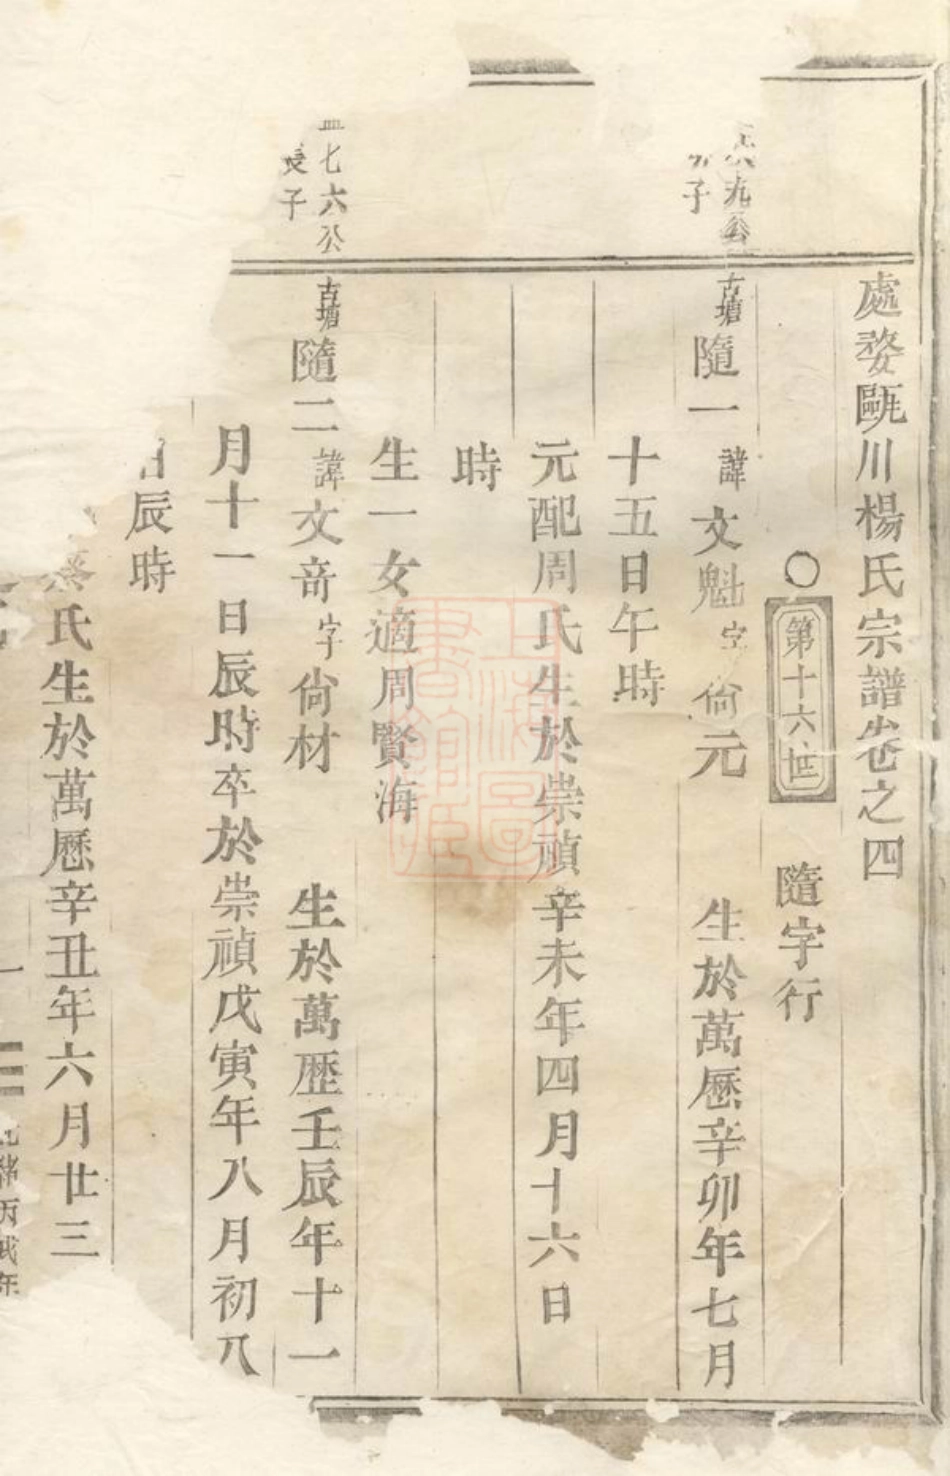 處婺甌川楊氏宗譜卷之四
〇第十六世 隨字行
九公
子
古塘 隨一 諱文魁字尙元 生於萬曆辛卯年七月
十五日午時
元配周氏生於崇禎辛未年四月十六日
時
生一女適周賢海
七六公
長子
古塘 隨二 諱文竒字尙材 生於萬歷壬辰年十一
月十一日辰時卒於崇禎戊寅年八月初八
日辰時
氏生於萬曆辛丑年六月廿三
一
緒丙戌年
上海圖書館藏